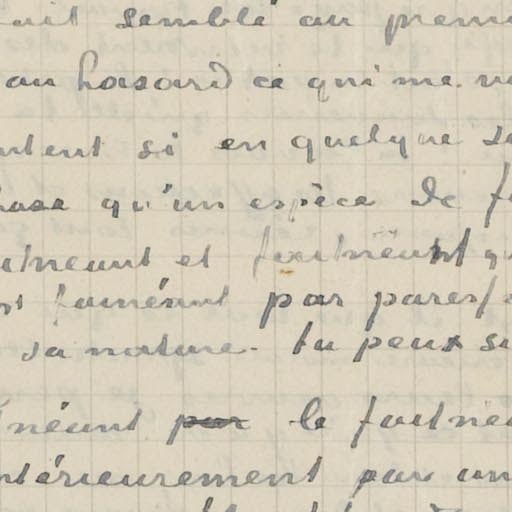 ait semblé au premi
au hasard ce qui me v
ntent si en quelque s
hose qu'un espèce de f
inéant et faitnéant q
st fainéant par paress
sa nature. tu peux si
néant par le faitnéa
ntérieurement par un